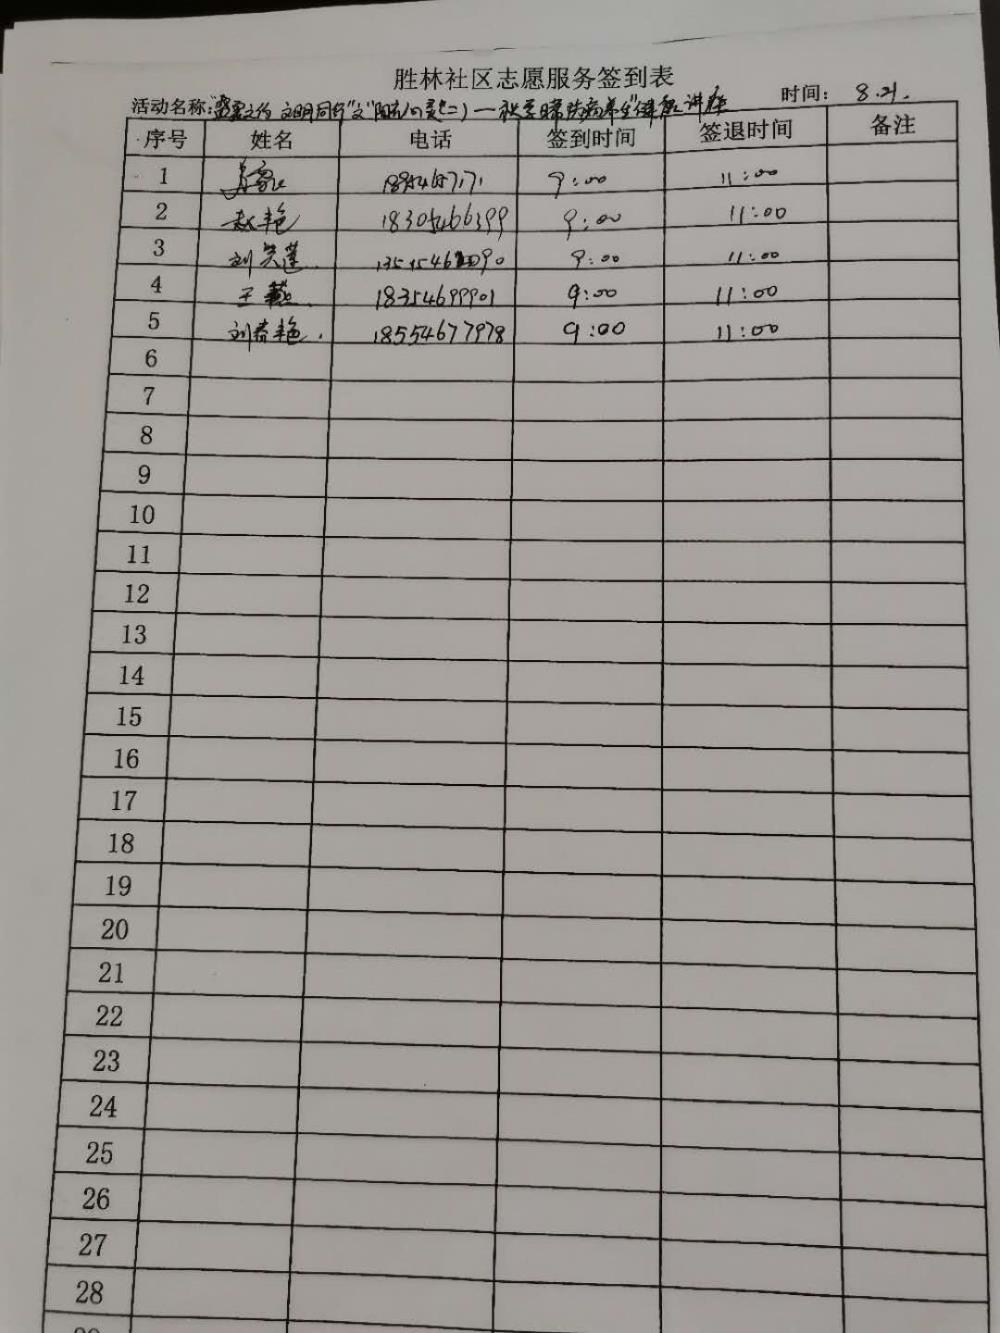 胜林社区志愿服务签到表
活动名称: 文明同行 讲座 时间: 8.21.
序号 姓名 电话 签到时间 签退时间 备注
1 9:00 11:00
2 赵艳 18305466399 9:00 11:00
3 刘笑莲 9:00 11:00
4 王燕 18354699901 9:00 11:00
5 刘春艳 18554677978 9:00 11:00
6
7
8
9
10
11
12
13
14
15
16
17
18
19
20
21
22
23
24
25
26
27
28
29